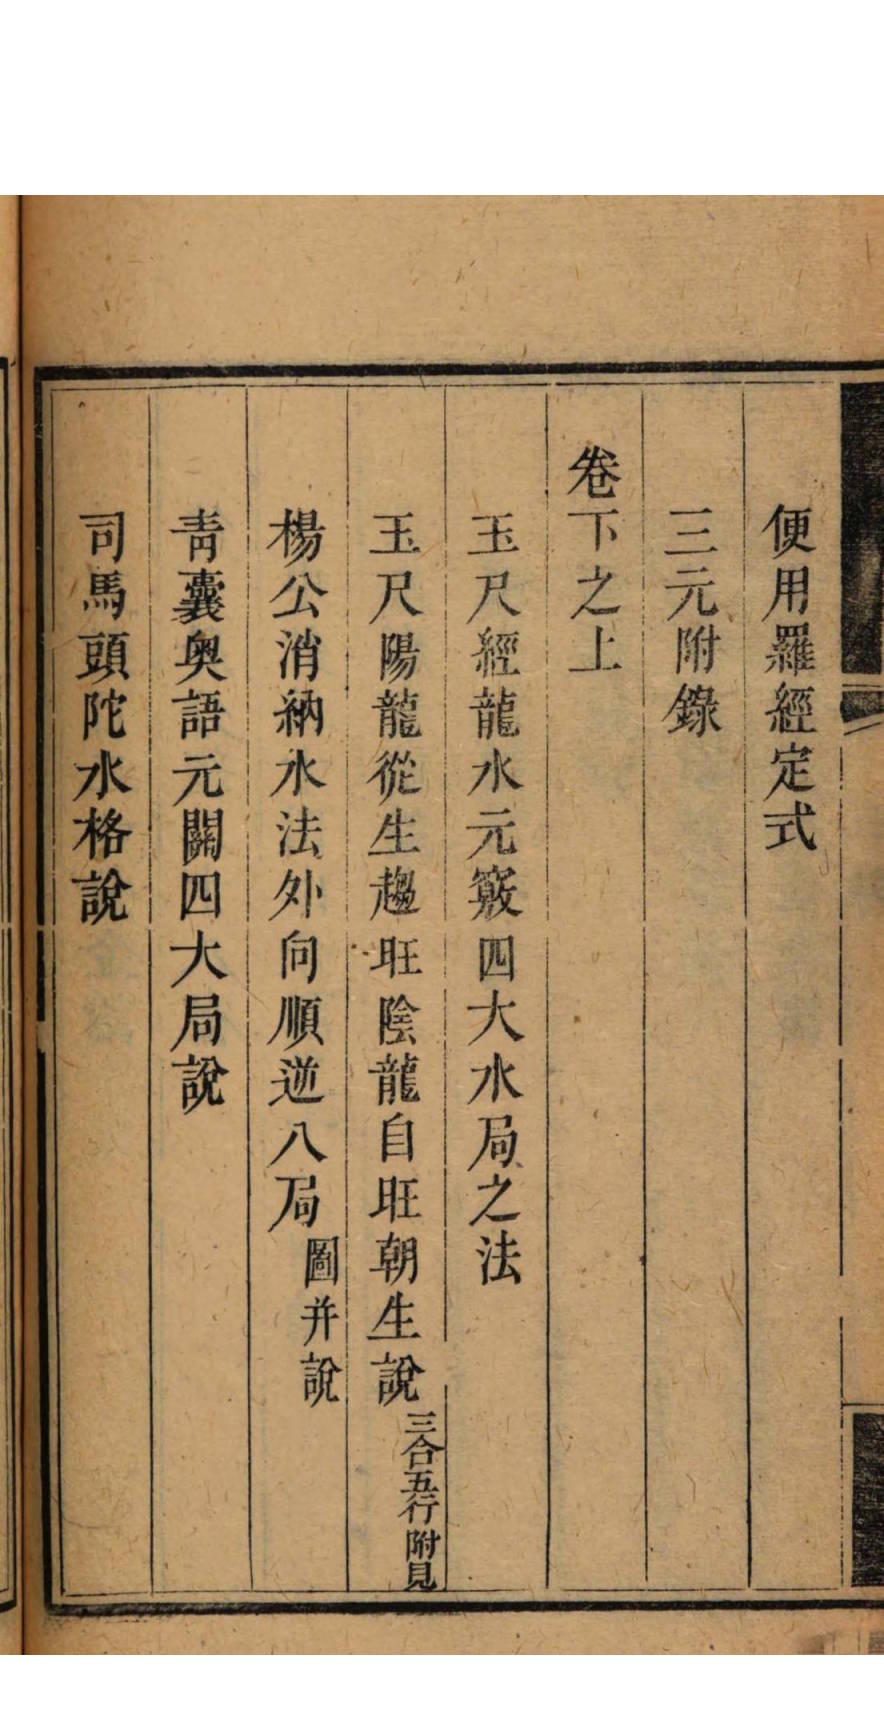 便用羅經定式
三元附錄
卷下之上
玉尺經龍水元竅四大水局之法
玉尺陽龍從生趨旺陰龍自旺朝生說三合五行附見
楊公消納水法外向順逆八局圖并說
青囊奥語元關四大局說
司馬頭陀水格說